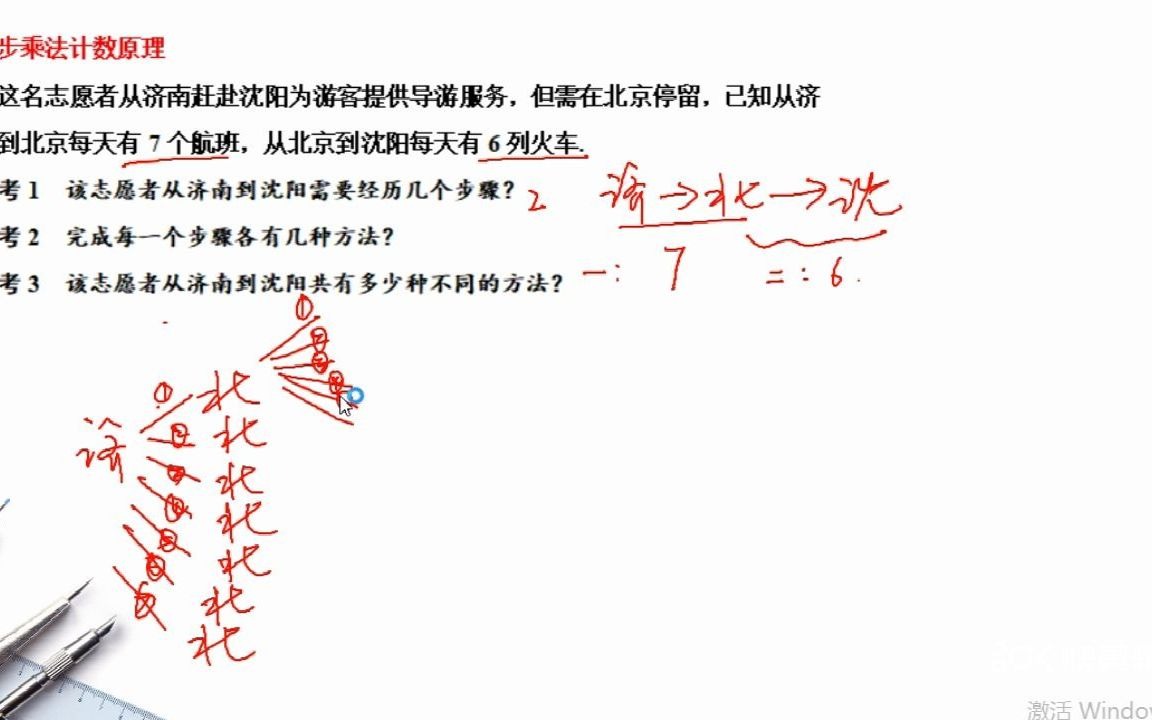 步乘法计数原理
这名志愿者从济南赶赴沈阳为游客提供导游服务，但需在北京停留，已知从济
到北京每天有 7 个航班，从北京到沈阳每天有 6 列火车.
考 1 该志愿者从济南到沈阳需要经历几个步骤? 2 济→北→沈
考 2 完成每一个步骤各有几种方法?
考 3 该志愿者从济南到沈阳共有多少种不同的方法? 一: 7 二: 6.
①
① 北
济 北
北
北
北
北
北
激活 Window